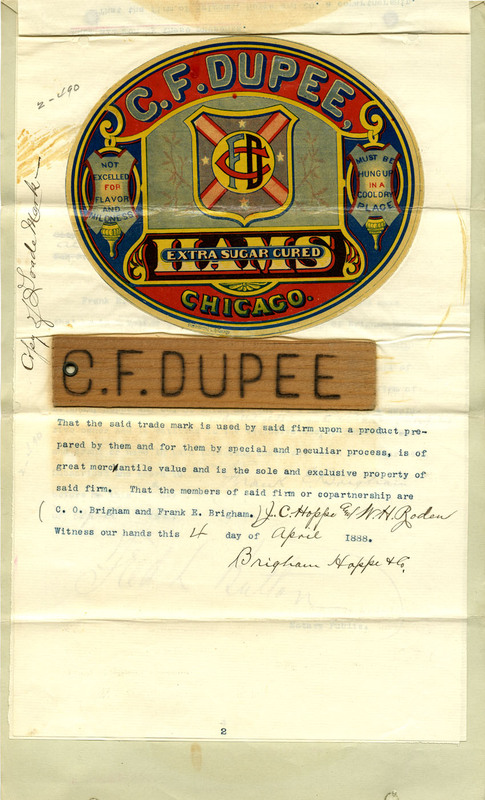 2-490
Copy of Trade Mark
C.F. DUPEE,
NOT
EXCELLED
FOR
FLAVOR
AND
MILDNESS
CFD
MUST BE
HUNG UP
IN A
COOL DRY
PLACE
HAMS
EXTRA SUGAR CURED
CHICAGO.
C.F. DUPEE
That the said trade mark is used by said firm upon a product pre-
pared by them and for them by special and peculiar process, is of
great mercantile value and is the sole and exclusive property of
said firm. That the members of said firm or copartnership are
( C. O. Brigham and Frank E. Brigham. ) J. C. Hoppe & W. H. Roden
Witness our hands this 4 day of April 1888.
Brigham Hoppe & Co.
2